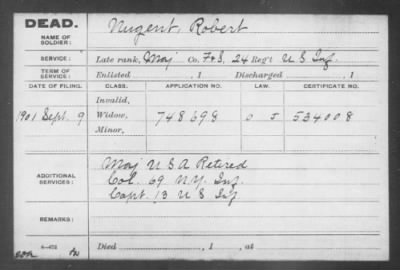 DEAD.
Nugent, Robert
NAME OF SOLDIER:
SERVICE: Late rank, Maj Co. F&S, 24 Reg't U S Inf.
TERM OF SERVICE: Enlisted , 1 Discharged , 1
DATE OF FILING. CLASS. APPLICATION NO. LAW. CERTIFICATE NO.
Invalid,
1901 Sept. 9 Widow, 748698 O J 534008
Minor,
Maj U S A Retired
ADDITIONAL SERVICES: Col. 69 N.Y. Inf.
Capt. 13 U S Inf
REMARKS:
Died , 1 , at